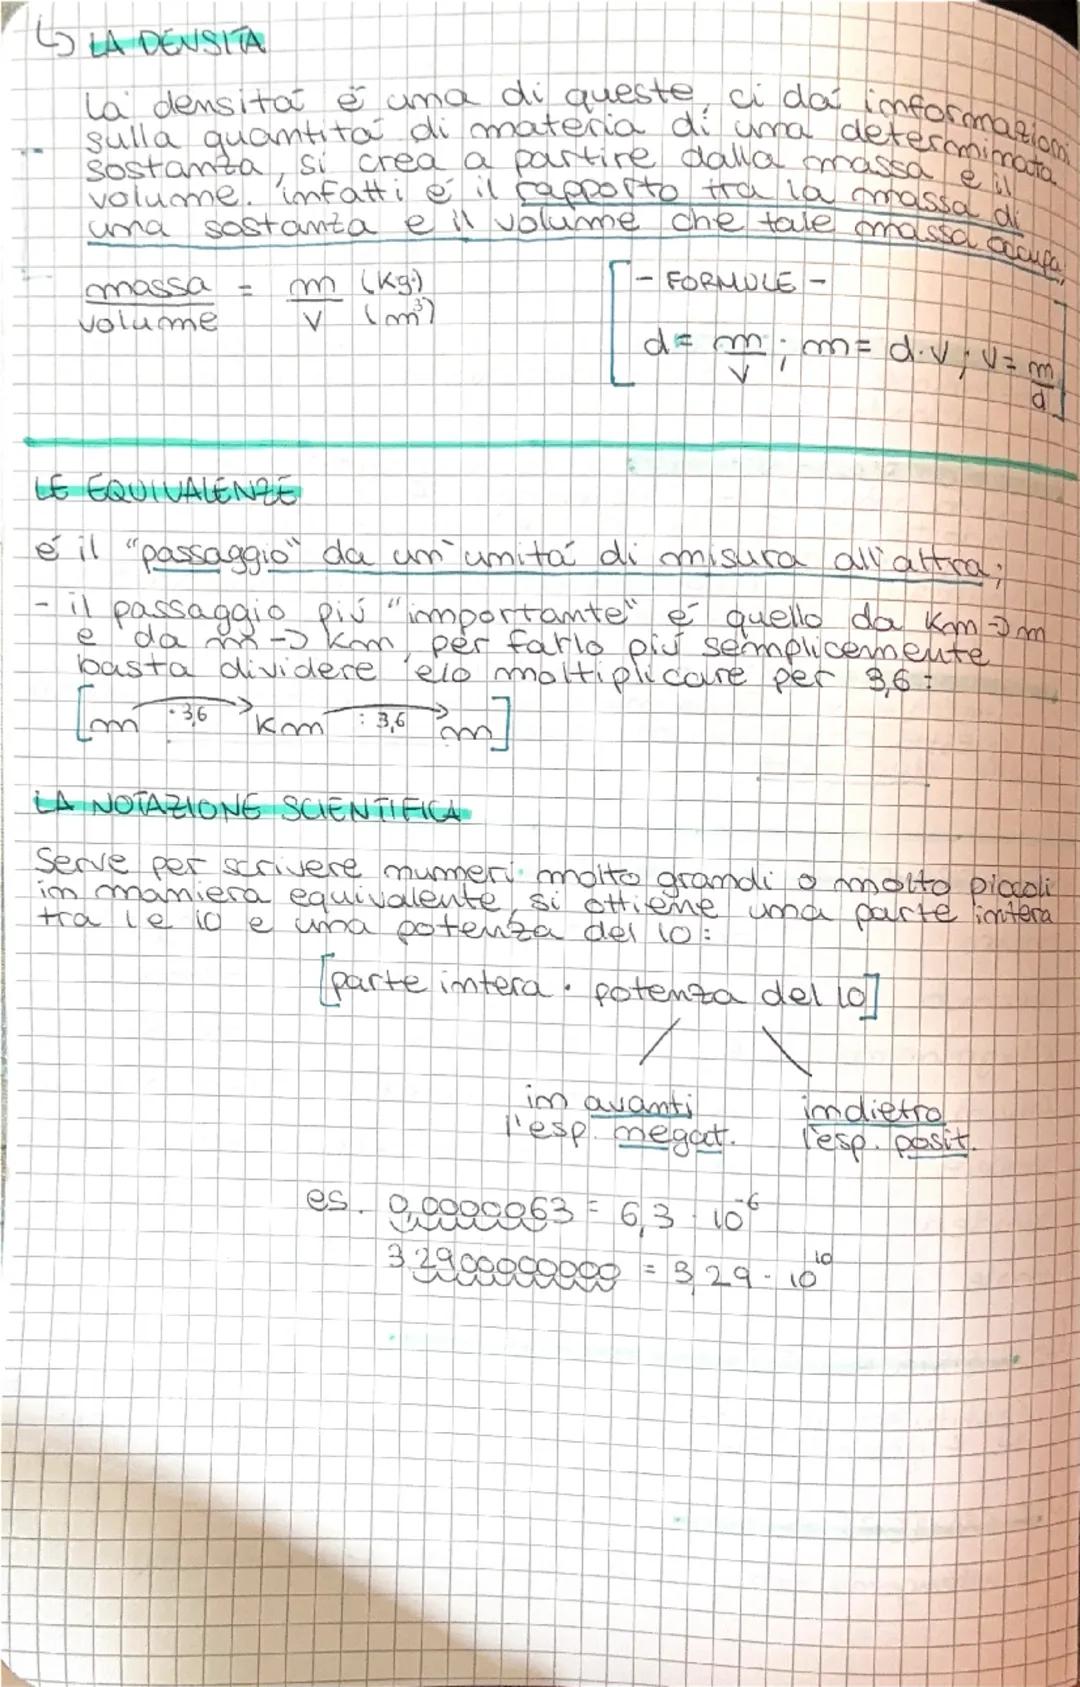 ↳ LA DENSITÀ
La densità è una di queste, ci dà informazioni
sulla quantità di materia di una determinata
sostanza, si crea a partire dalla massa e il
volume. infatti è il rapporto tra la massa di
una sostanza e il volume che tale massa occupa;
massa/volume = m/V (Kg) (m³)
- FORMULE -
[d = m/V ; m = d·V ; V = m/d]
LE EQUIVALENZE
é il "passaggio" da un'unità di misura all'altra;
- il passaggio più "importante" é quello da Km → m
e da m → Km, per farlo più semplicemente
basta dividere e/o moltiplicare per 3,6:
[m · 3,6 → Km : 3,6 → m]
LA NOTAZIONE SCIENTIFICA
Serve per scrivere numeri molto grandi o molto piccoli
in maniera equivalente, si ottiene una parte intera
tra 1 e 10 e una potenza del 10:
[parte intera · potenza del 10]
in avanti indietro
l'esp. negat. l'esp. posit.
es. 0,0000063 = 6,3 · 10⁻⁶
32900000000 = 3,29 · 10¹⁰